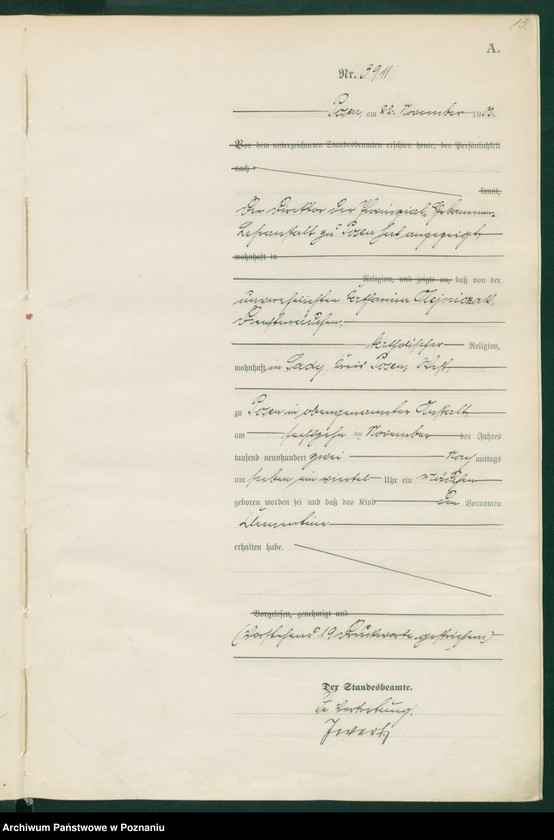 13.
A.
Nr. 3911
Posen, am 22. November 1902.
Vor dem unterzeichneten Standesbeamten erschien heute, der Persönlichkeit
nach
kannt,
Der Direktor der Provinzial-Hebammen
Lehranstalt zu Posen hat angezeigt,
wohnhaft in
Religion, und zeigte an, daß von der
unverehelichten Katharina Olejniczak,
Dienstmädchen,
katholischer Religion,
wohnhaft in Sady, Kreis Posen, West,
zu Posen in obengenannter Anstalt
am sechszehn ten November des Jahres
tausend neunhundert zwei Nachmittags
um sieben ein viertel Uhr ein Mädchen
geboren worden sei und daß das Kind den Vornamen
Klementine
erhalten habe.
Vorgelesen, genehmigt und
(Vorstehend 19 Druckworte gestrichen)
Der Standesbeamte.
In Vertretung.
Archiwum Państwowe w Poznaniu